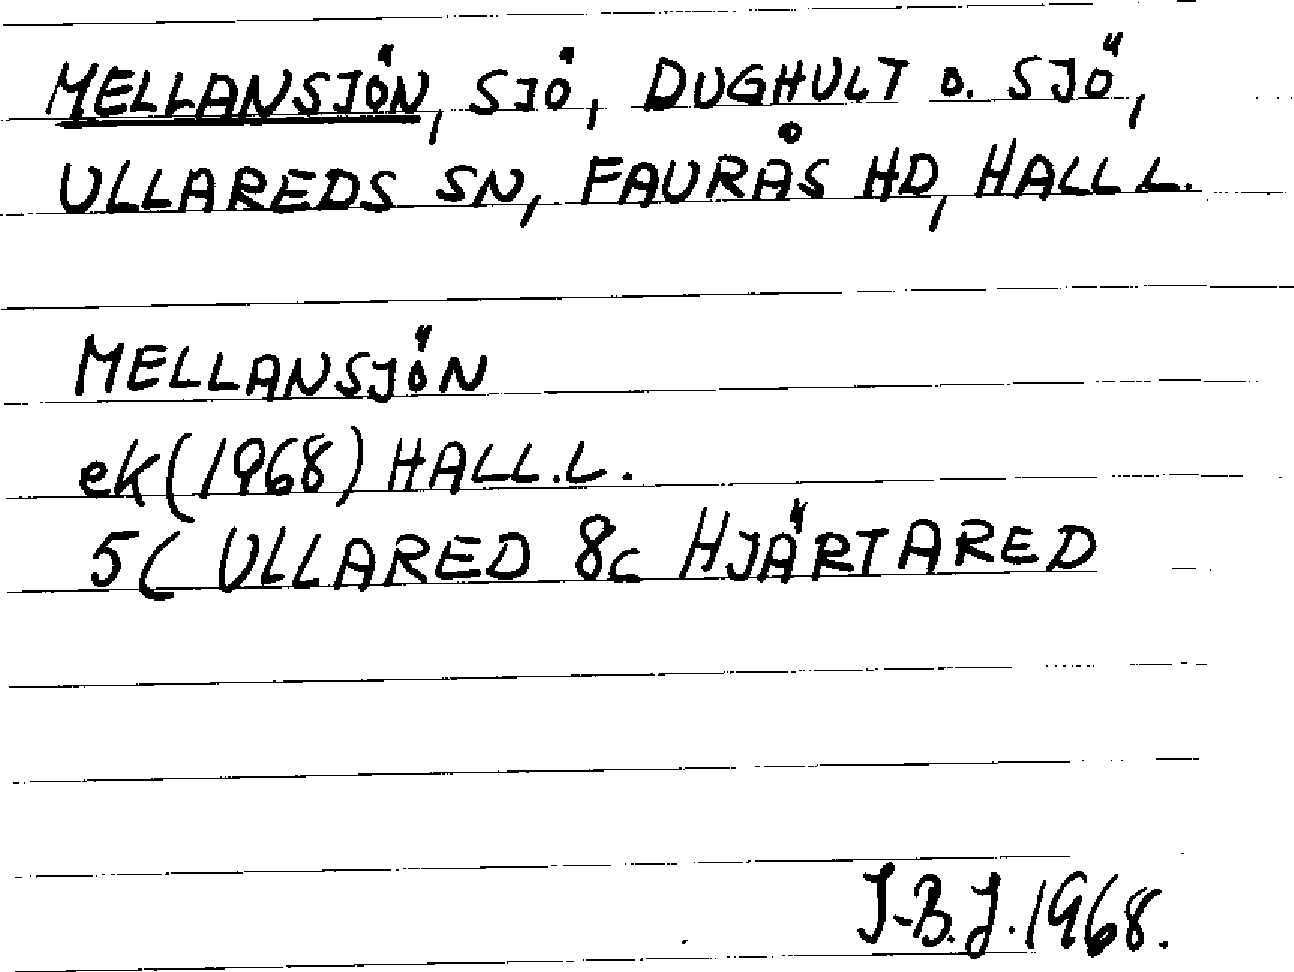 MELLANSJÖN, SJÖ, DUGHULT O. SJÖ,
ULLAREDS SN, FAURÅS HD, HALL L.
MELLANSJÖN
ek (1968) HALL.L.
5C ULLARED 8c HJÄRTARED
J-B.J. 1968.